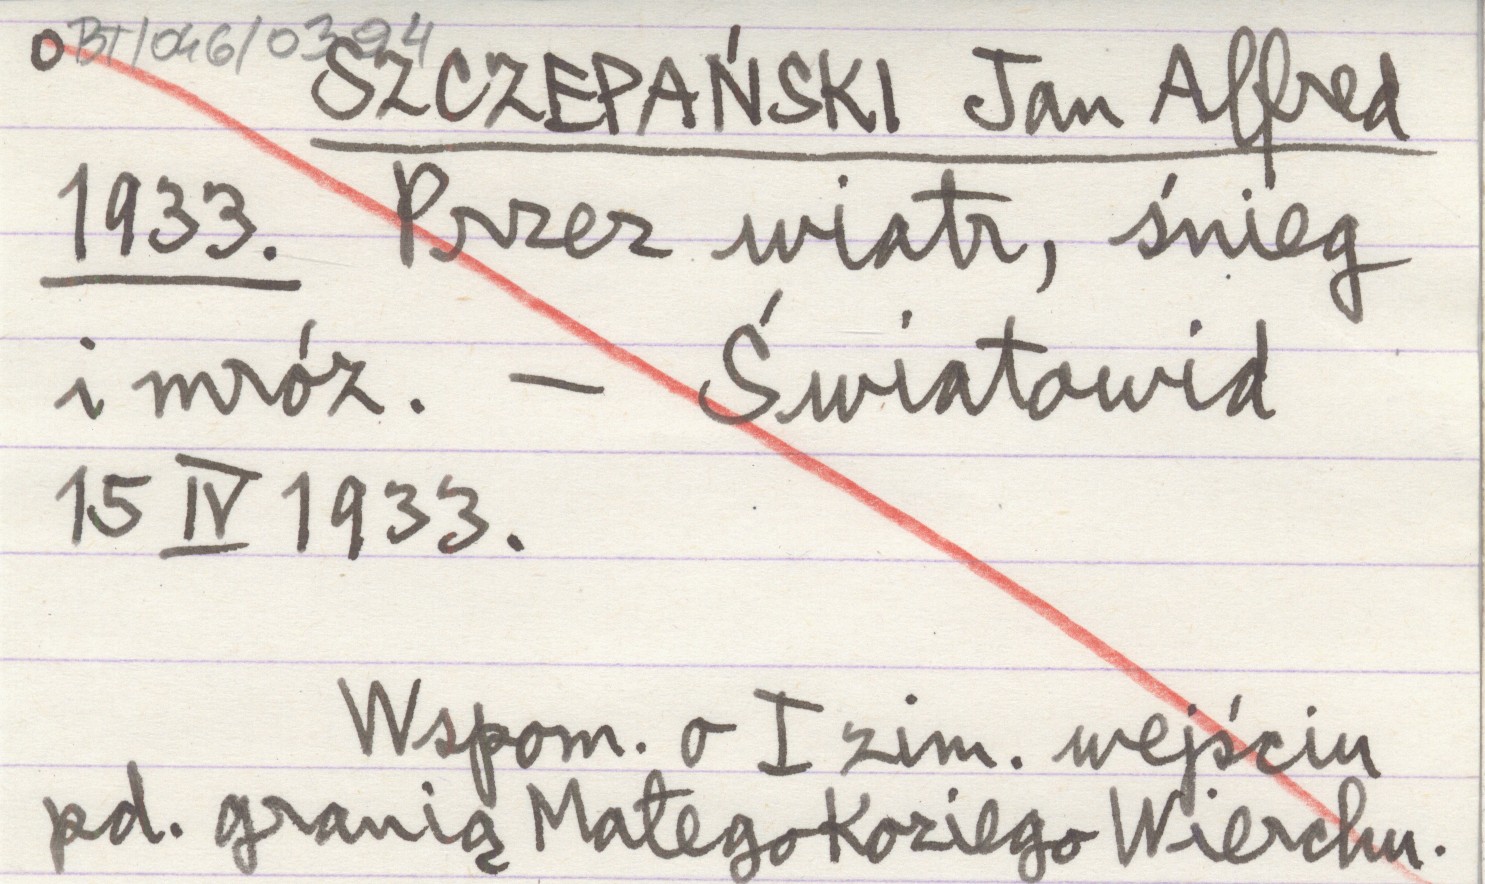 o BT/046/0394
SZCZEPAŃSKI Jan Alfred
1933. Przez wiatr, śnieg
i mróz. – Światowid
15 IV 1933.
Wspom. o I zim. wejściu
pd. granią Małego Koziego Wierchu.